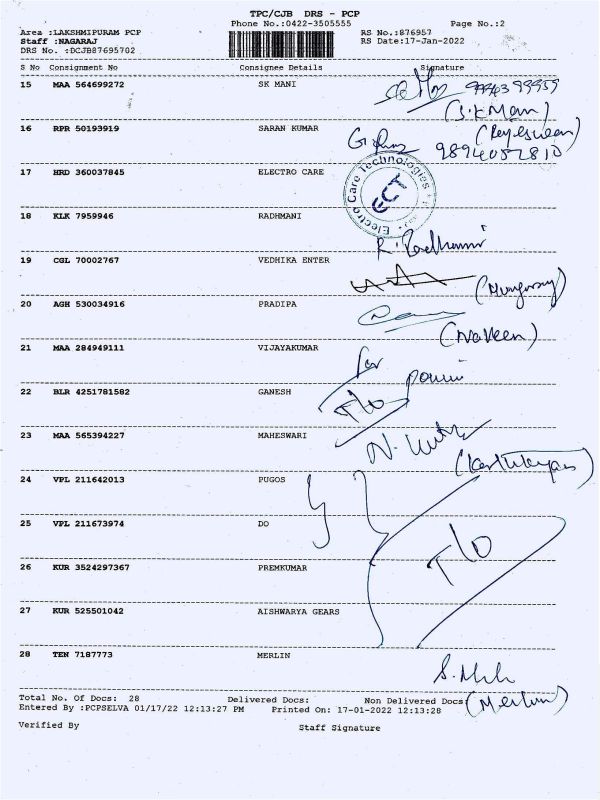 TPC/CJB DRS - PCP
Phone No.:0422-3505555 Page No.:2
Area :LAKSHMIPURAM PCP RS No.:876957
Staff :NAGARAJ RS Date:17-Jan-2022
DRS No. :DCJB87695702
S No Consignment No Consignee Details Signature
15 MAA 564699272 SK MANI
(S.K Mani)
16 RPR 50193919 SARAN KUMAR
9894052810
17 HRD 360037845 ELECTRO CARE
Electro Care Technologies
ECT
18 KLK 7959946 RADHMANI
R. Radhamani
19 CGL 70002767 VEDHIKA ENTER
20 AGH 530034916 PRADIPA
(Naveen)
21 MAA 284949111 VIJAYAKUMAR
for
22 BLR 4251781582 GANESH
T/O
23 MAA 565394227 MAHESWARI
24 VPL 211642013 PUGOS
25 VPL 211673974 DO
T/O
26 KUR 3524297367 PREMKUMAR
27 KUR 525501042 AISHWARYA GEARS
28 TEN 7187773 MERLIN
Total No. Of Docs: 28 Delivered Docs: Non Delivered Docs:
(Merlin)
Entered By :PCPSELVA 01/17/22 12:13:27 PM Printed On: 17-01-2022 12:13:28
Verified By Staff Signature